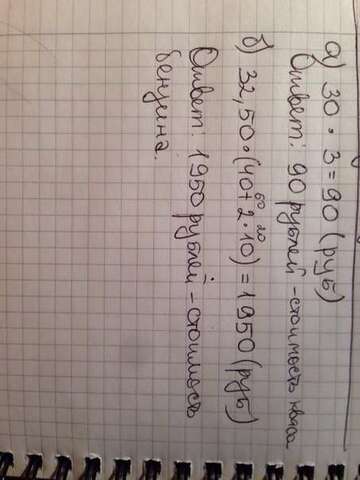 а) 30 · 3 = 90 (руб)
Ответ: 90 рублей - стоимость кваса
60 20
б) 32,50 · (40 + 2 · 10) = 1950 (руб)
Ответ: 1950 рублей - стоимость
бензина.